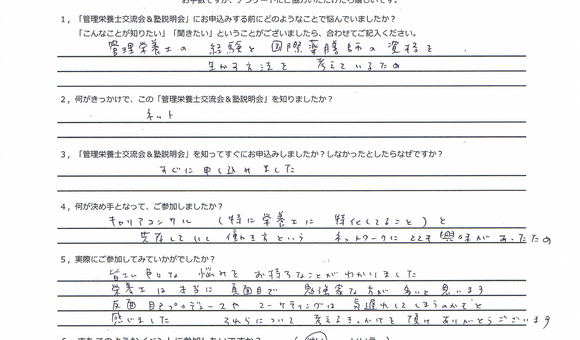 お手数ですが、アンケートにご協力いただけたら嬉しいです。
1，「管理栄養士交流会＆塾説明会」にお申込みする前にどのようなことで悩んでいましたか？
「こんなことが知りたい」「聞きたい」ということがございましたら、合わせてご記入ください。
管理栄養士の 経験と 国際薬膳師の 資格を
生かす方法を 考えているため
2，何がきっかけで、この「管理栄養士交流会＆塾説明会」を知りましたか？
ネット
3，「管理栄養士交流会＆塾説明会」を知ってすぐにお申込みしましたか？しなかったとしたらなぜですか？
すぐに申し込みました
4，何が決め手となって、ご参加しましたか？
キャリアコンサル （特に栄養士に 特化してること）と
共存していく 働き方という ネットワークに とても興味があったため
5，実際にご参加してみていかがでしたか？
皆さん色々な 悩みを お持ちなことがわかりました
栄養士は本当に 真面目で 勉強家な方が 多いと思います
反面 自己プロデュースや マーケティングは 気遅れしてしまうのかなと
感じました それらについて 考えるきっかけを 頂け ありがとうございます